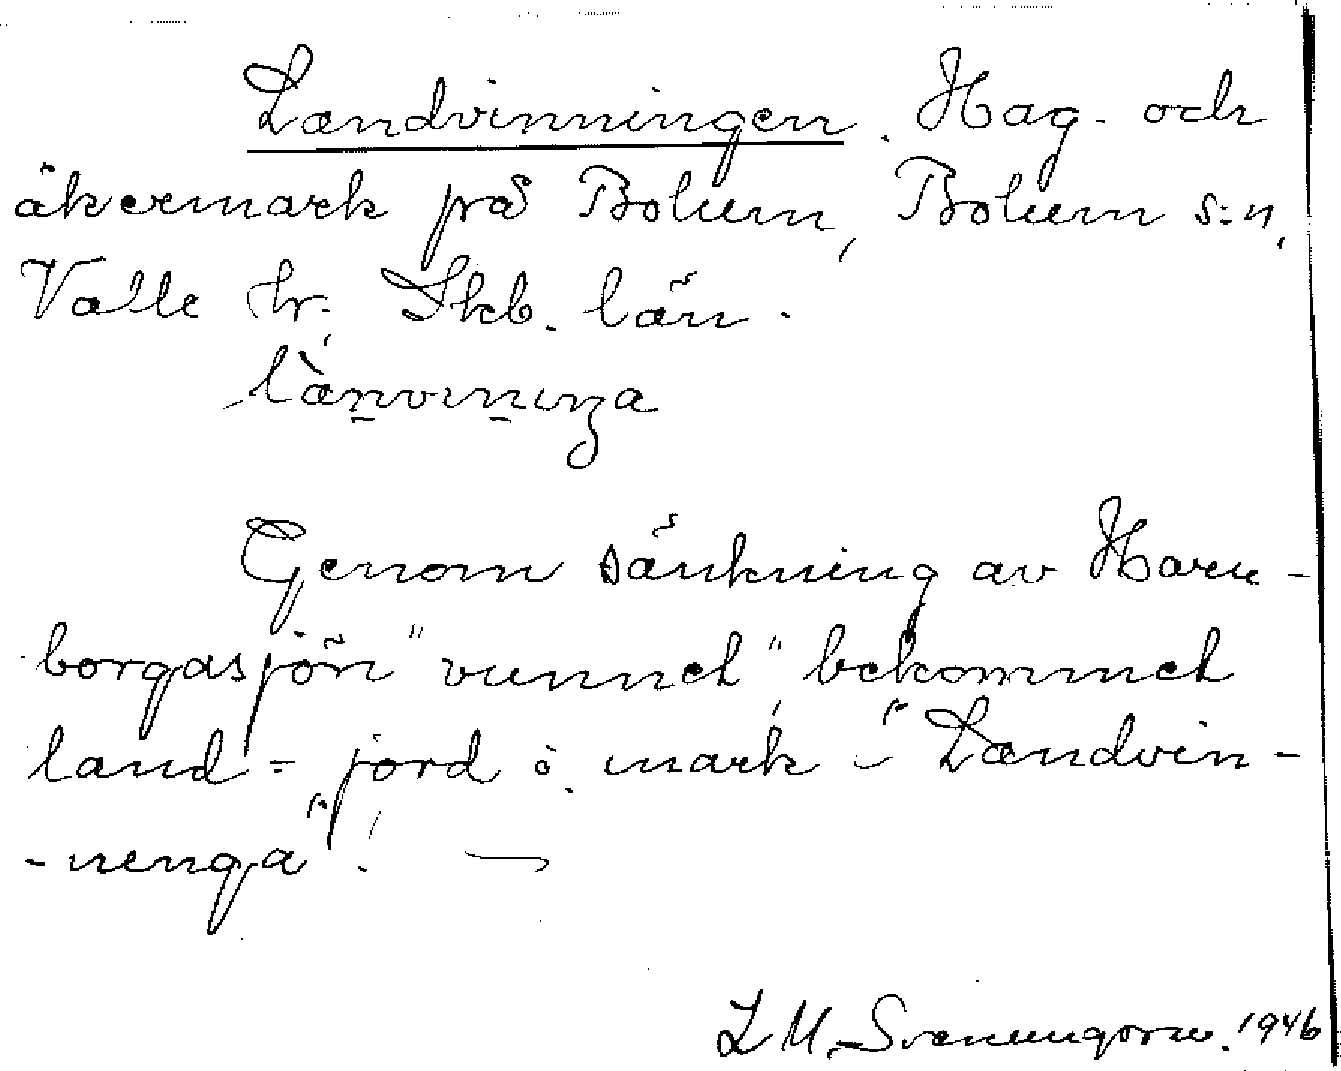 Landvinningen. Hag- och
åkermark på Bolum, Bolum s:n,
Valle hr. Skb. län.
lànviniŋa
Genom sänkning av Horn-
borgasjön "vunnet", bekommet
land = jord o. mark - "Landvin-
-nenga"!
L M. Svenungsson. 1946